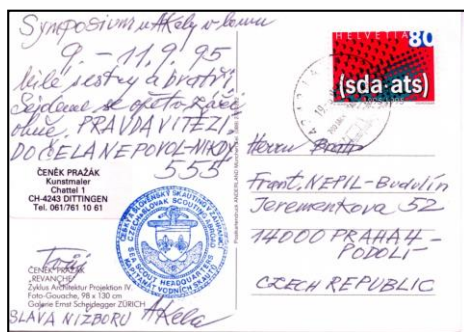 Symposium u Akely v lomu
9. – 11. 9. 95
bílé sestry a bratři,
Sejdeme se opět v září
PRAVDA VÍTĚZÍ,
DOČELA NEPOVOL-NIKDY
555
ČENĚK PRAŽÁK
Kunstmaler
Chattel 1
CH-4243 DITTINGEN
Tel. 061/761 10 61
ČENĚK PRAŽÁK
„REVANCHE"
Zyklus Architektur Projektion IV
Foto-Gouache, 98 x 130 cm
Galerie Ernst Scheidegger ZÜRICH
SLAVA NIŽBORU Akela
SCOUT HEADQUARTERS
HELVETIA 80
(sda-ats)
Herrn
Frant. NEPIL-Budulín
Jeremenkova 52
14000 PRAHA 4 –
PODOLÍ –
CZECH REPUBLIC